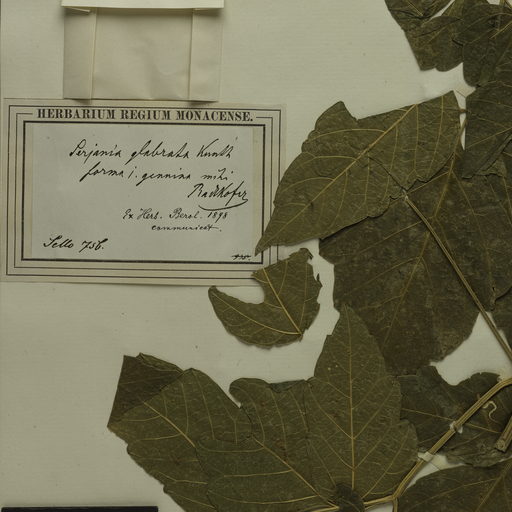 HERBARIUM REGIUM MONACENSE.
Serjania glabrata Kunth
forma 1. genuina mihi
Radlkofer
Ex Herb. Berol. 1898
communicat.
Sello 756.